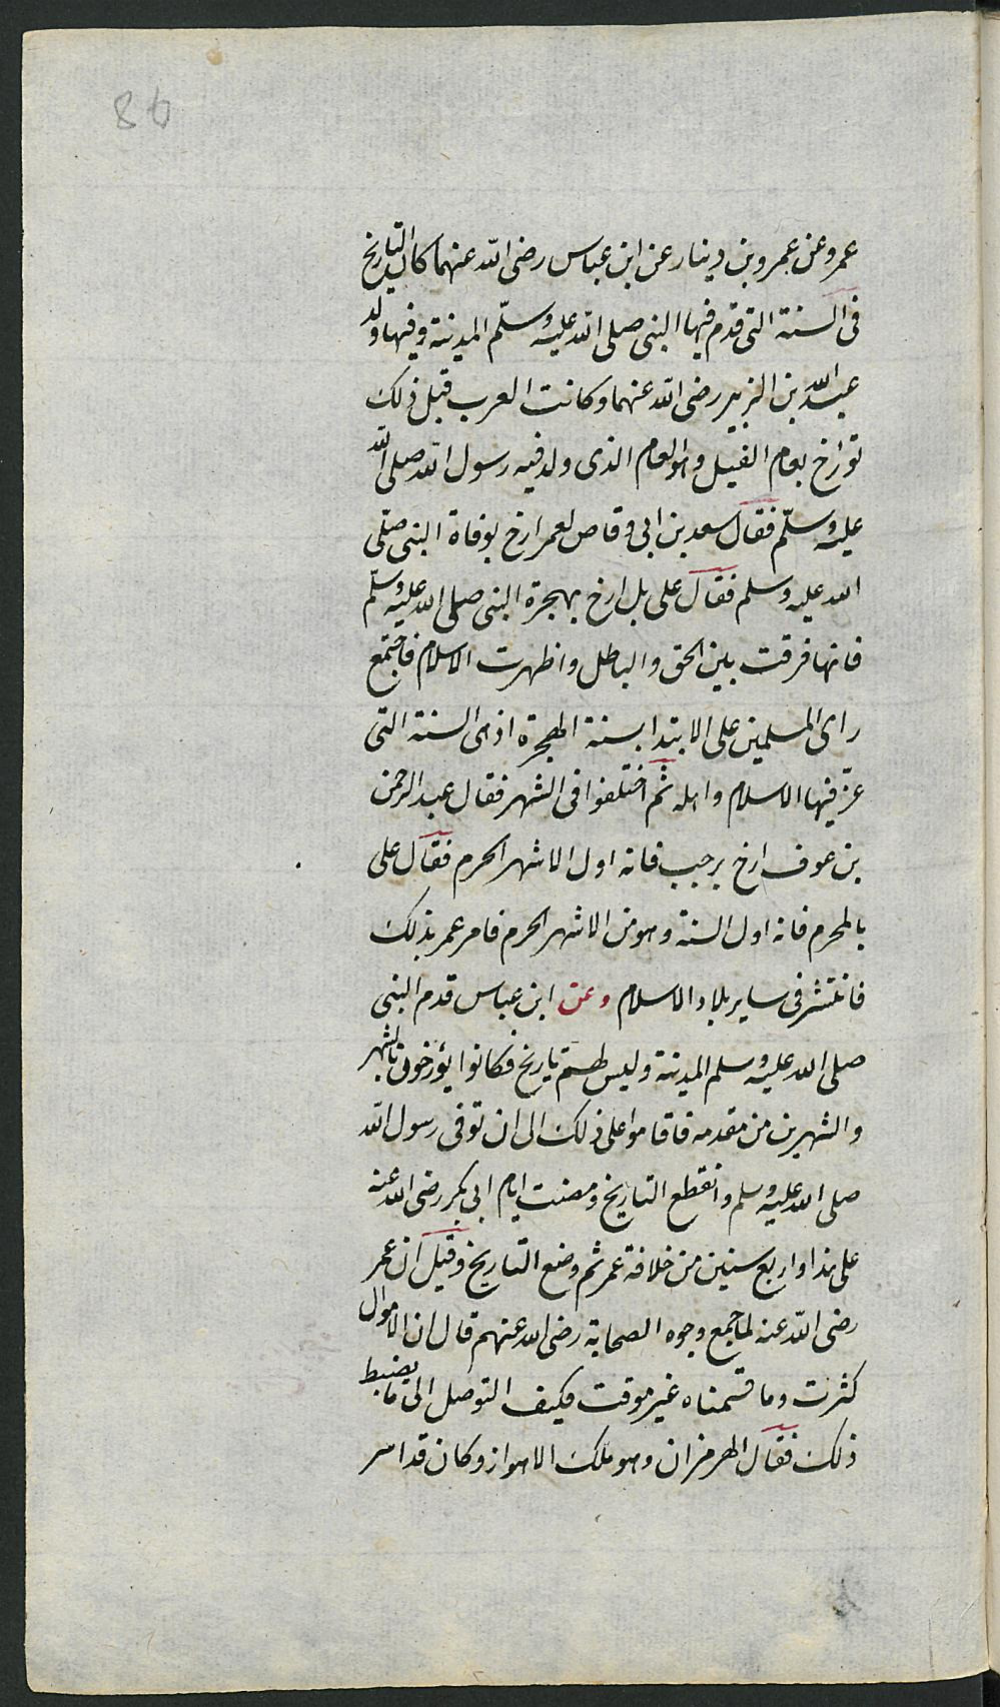 86
عمرو عن عمرو بن دينار عن ابن عباس رضى الله عنهما كان التاريخ
فى السنة التى قدم فيها النبى صلى الله عليه وسلّم المدينة وفيها ولد
عبد الله بن الزبير رضى الله عنهما وكانت العرب قبل ذلك
تورّخ بعام الفيل وهو العام الذى ولد فيه رسول الله صلى الله
عليه وسلّم فقال سعد بن ابى وقاص لعمر ارخ بوفاة النبى صلّى
الله عليه وسلم فقال على بل ارخ بهجرة النبى صلى الله عليه وسلّم
فانها فرقت بين الحق والباطل واظهرت الاسلام فاجتمع
راى المسلمين على الابتدا بسنة الهجرة اذ هى السنة التى
عزّ فيها الاسلام واهله ثم اختلفوا فى الشهر فقال عبد الرحمن
بن عوف ارخ برجب فانه اول الاشهر الحرم فقال على
بالمحرم فانه اول السنة وهو من الاشهر الحرم فامر عمر بذلك
فانتشر فى ساير بلاد الاسلام وعن ابن عباس قدم النبى
صلى الله عليه وسلم المدينة وليس لهم تاريخ فكانوا يؤرخون بالشهر
والشهرين من مقدمه فاقاموا على ذلك الى ان توفى رسول الله
صلى الله عليه وسلم وانقطع التاريخ ومضت ايام ابى بكر رضى الله عنه
على هذا واربع سنين من خلافة عمر ثم وضع التاريخ وقيل ان عمر
رضى الله عنه لما جمع وجوه الصحابة رضى الله عنهم قال ان الاموال
كثرت وما قسمناه غير موقت فكيف التوصل الى ما يضبط
ذلك فقال الهرمزان وهو ملك الاهواز وكان قد اسر